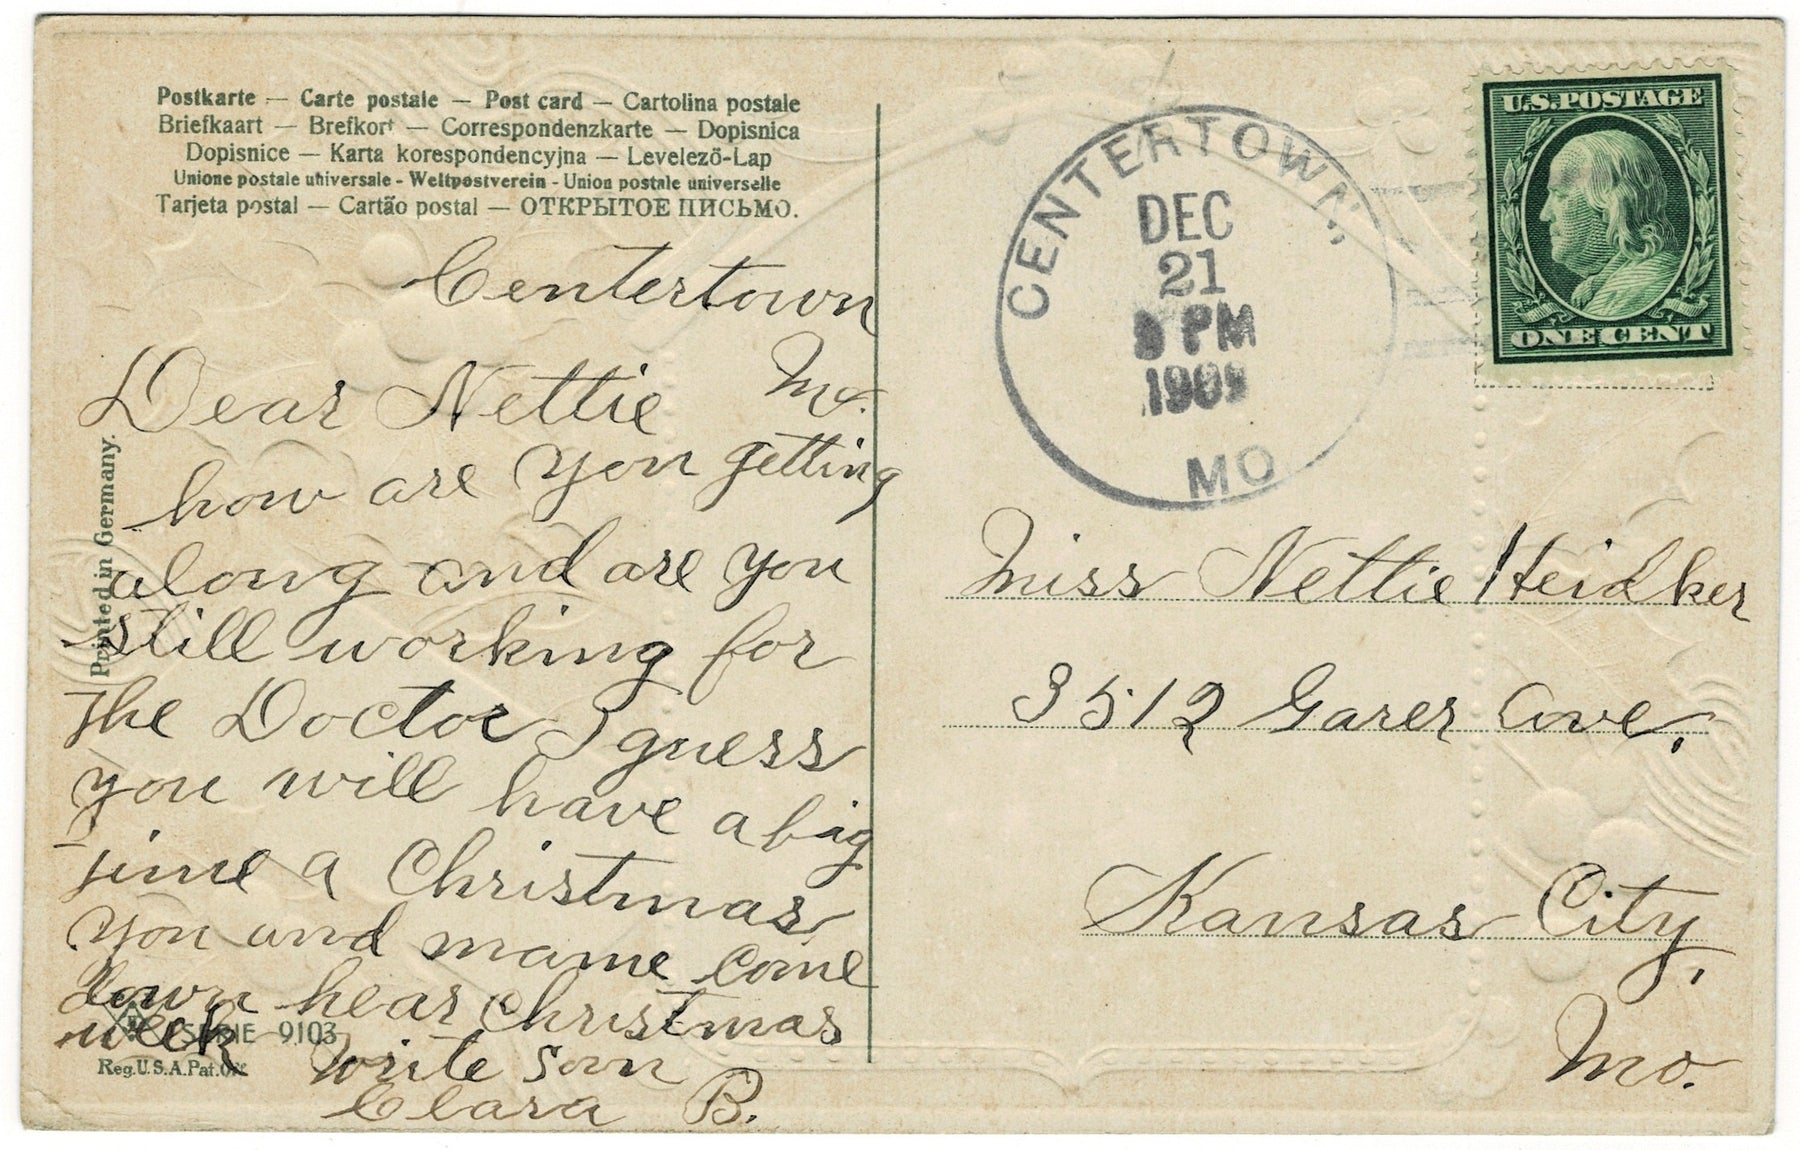 Postkarte — Carte postale — Post card — Cartolina postale
Briefkaart — Brefkort — Correspondenzkarte — Dopisnica
Dopisnice — Karta korespondencyjna — Levelező-Lap
Unione postale universale - Weltpostverein - Union postale universelle
Tarjeta postal — Cartão postal — ОТКРЫТОЕ ПИСЬМО.
Centertown
Mo.
Dear Nettie
how are you getting
along and are you
still working for
the Doctor I guess
you will have a big
time a Christmas
you and mame come
down hear Christmas
week
write soon
Clara B.
Printed in Germany.
SERIE 9103
Reg.U.S.A.Pat.Off
CENTERTOWN,
DEC
21
PM
1909
MO
U.S.POSTAGE
ONE CENT
Miss Nettie Heidker
3512 Garer Ave.
Kansas City,
Mo.